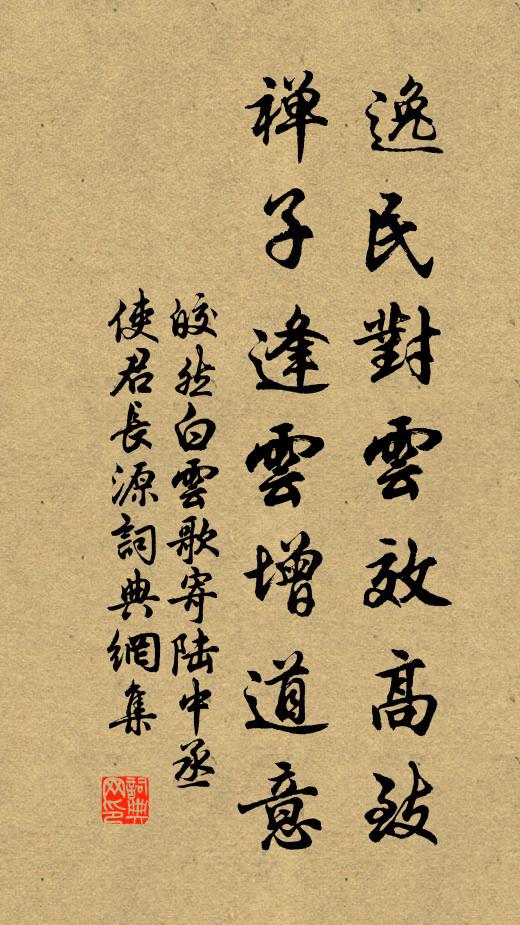 逸民對雲效高致
禅子逢雲增道意
皎然白雲歌寄陆中丞
使君長源詞典網集
詞典网印